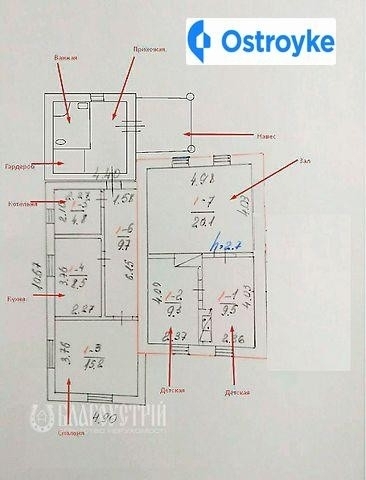 Ostroyke
Ванная
Прихожая
Навес
Гардероб
4.40
Зал
Котельная
2.27
1.58
4.98
2.10
1-5
4.8
1-7
20.1
4.03
1-6
9.7
h=2.7
10.67
3.76
1-4
8.5
6.15
Кухня
2.27
4.09
1-2
9.3
1-1
9.5
4.03
3.76
1-3
15.2
2.37
2.36
Детская
Детская
БЛАГОУСТРІЙ
АГЕНТСТВО НЕРУХОМОСТІ
4.90
Спальня